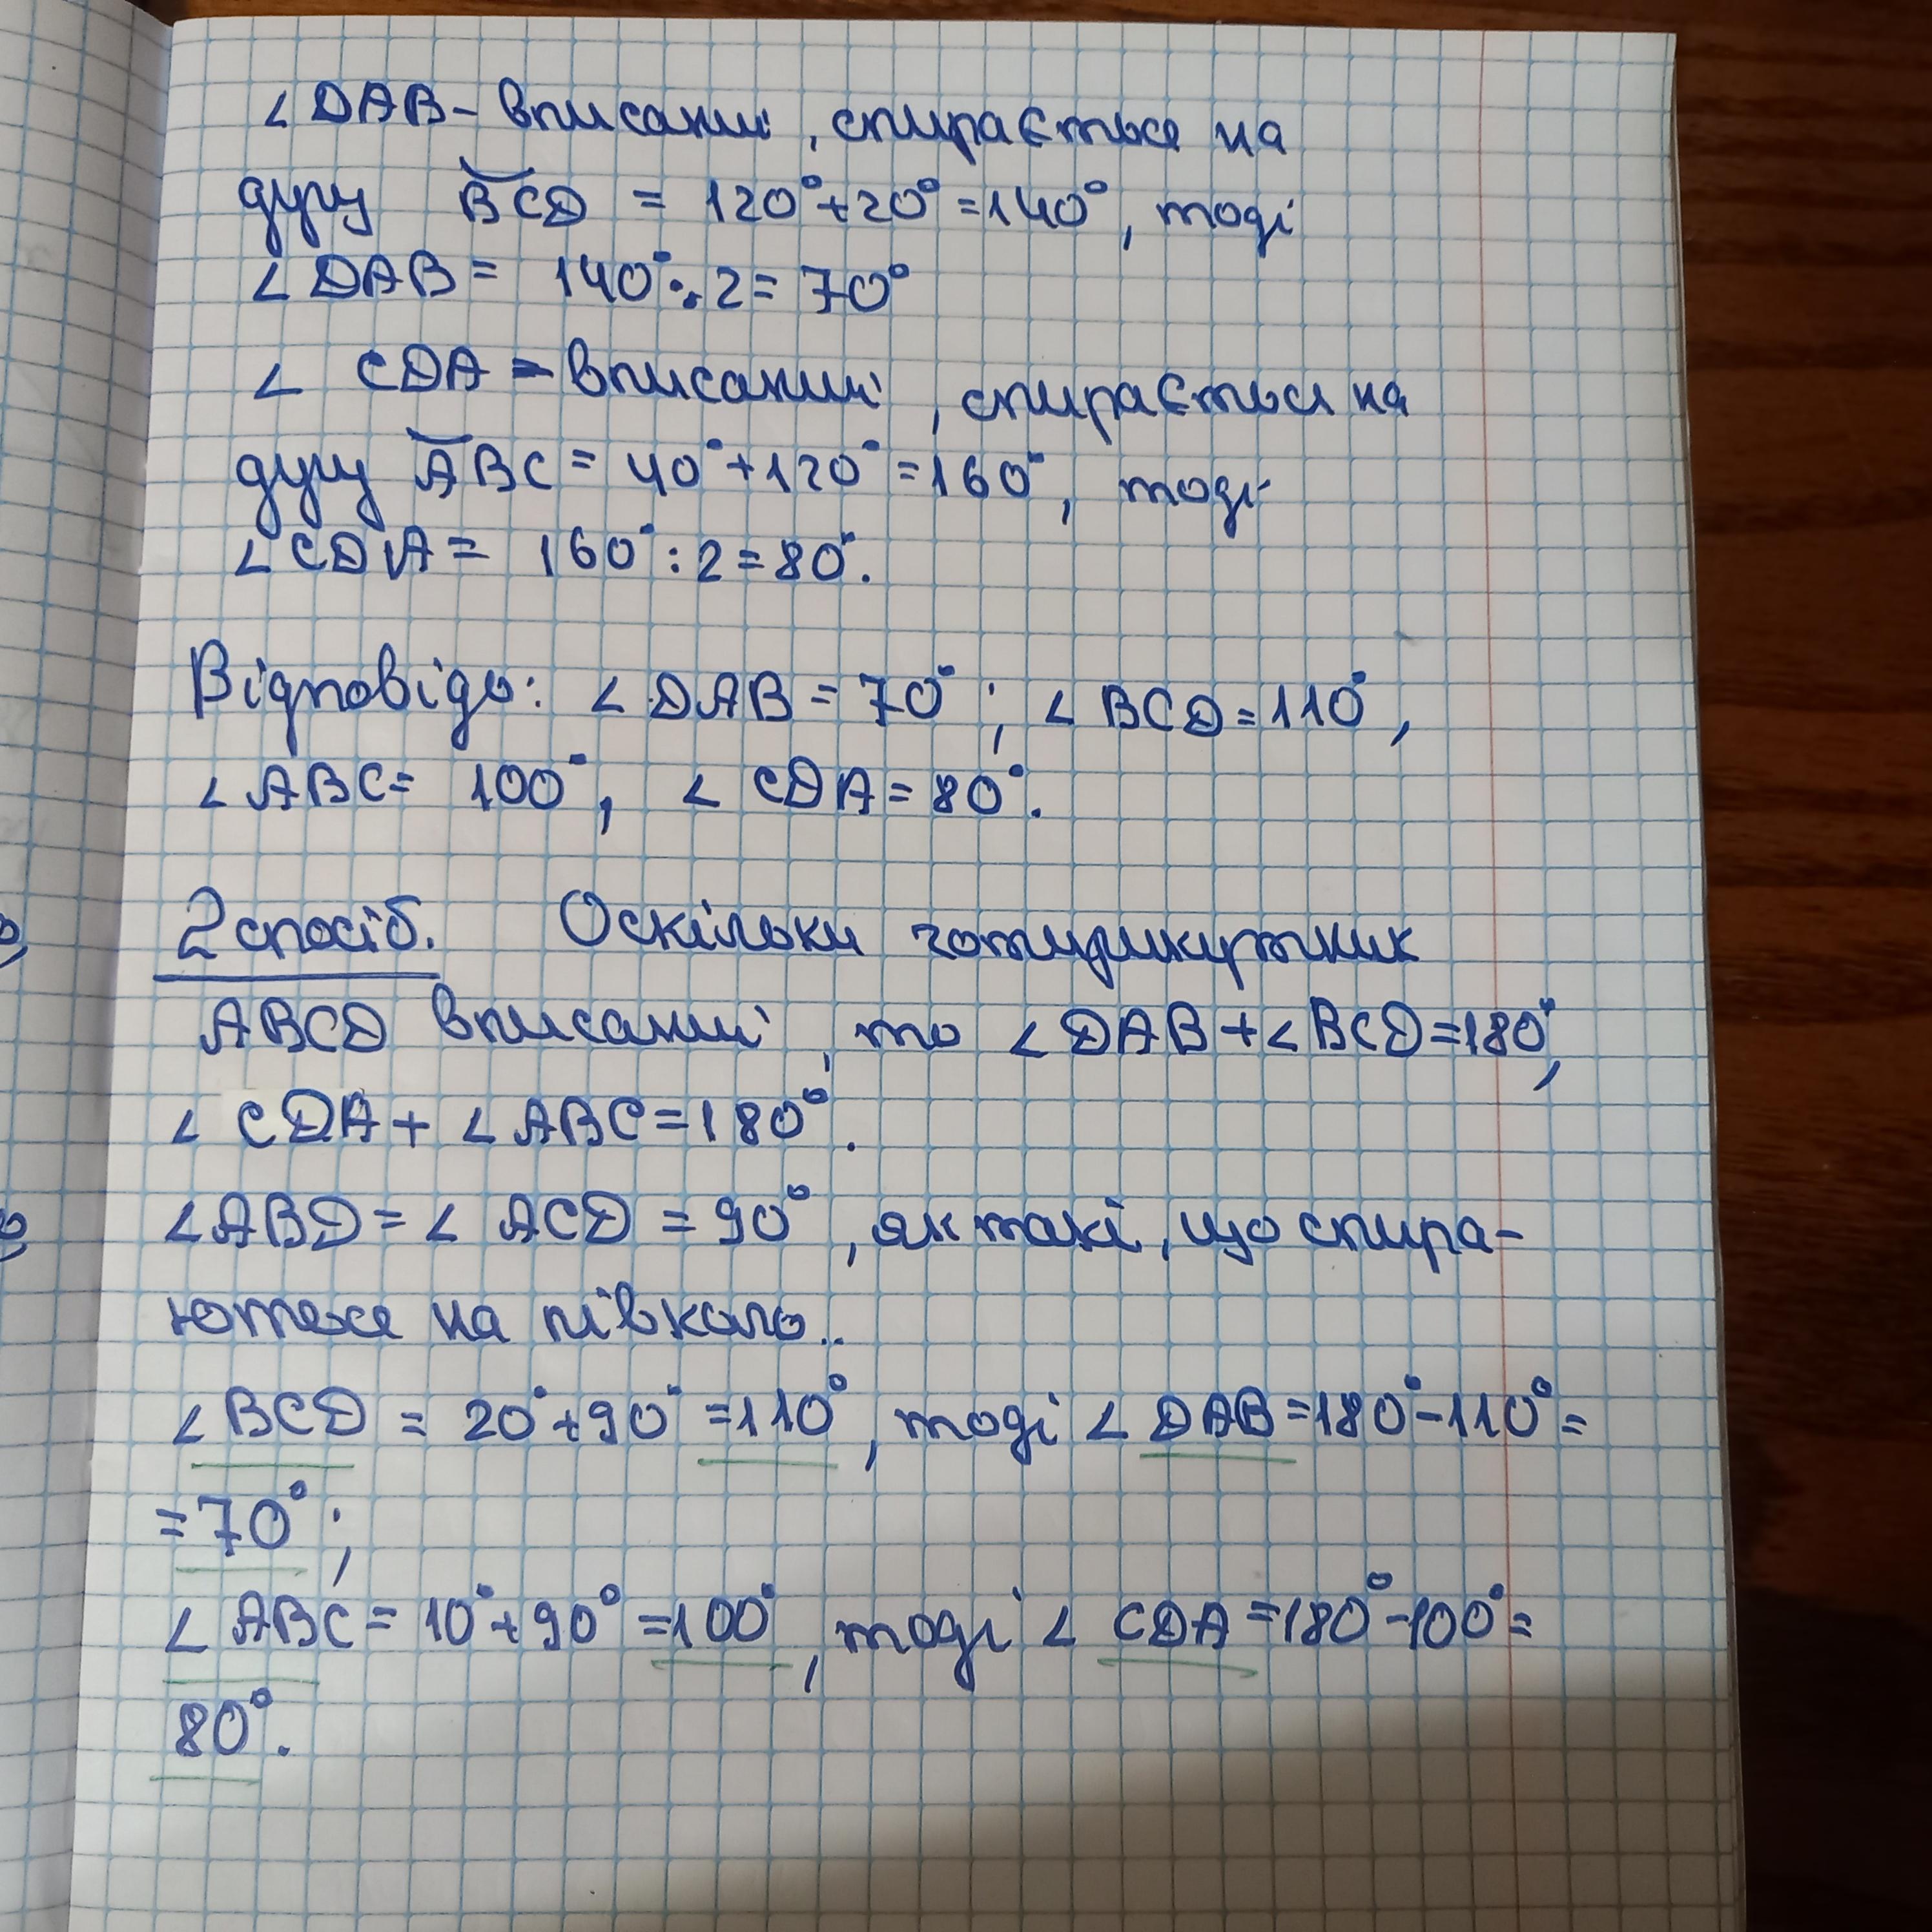 ∠DAB – вписаний, спирається на
дугу BCD = 120° + 20° = 140°, тоді
∠DAB = 140° : 2 = 70°
∠ CDA – вписаний, спирається на
дугу ABC = 40° + 120° = 160°, тоді
∠CDA = 160° : 2 = 80°.
Відповідь: ∠DAB = 70°; ∠BCD = 110°,
∠ABC = 100°, ∠CDA = 80°.
2 спосіб. Оскільки чотирикутник
ABCD вписаний, то ∠DAB + ∠BCD = 180°,
∠CDA + ∠ABC = 180°.
∠ABD = ∠ACD = 90°, як такі, що спира-
ються на півколо..
∠BCD = 20° + 90° = 110°, тоді ∠DAB = 180° – 110° =
= 70°;
∠ABC = 10° + 90° = 100°, тоді ∠CDA = 180° – 100° =
80°.